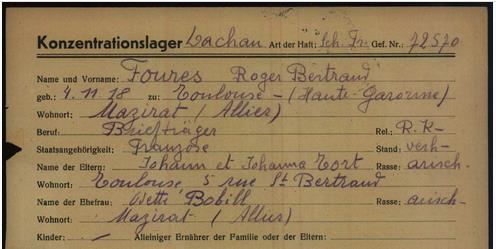 Konzentrationslager Dachau Art der Haft: Sch. Fr. Gef. Nr.: 72570
Name und Vorname: Foures Roger Bertrand
geb.: 4. 11. 18 zu: Toulouse - (Haute-Garonne)
Wohnort: Mazirat (Allier)
Beruf: Briefträger Rel.: R.K-
Staatsangehörigkeit: Franzose Stand: verh-
Name der Eltern: Johann et Johanna Tort Rasse: arisch-
Wohnort: Toulouse, 5 rue St Bertrand
Name der Ehefrau: Odette Bobill Rasse: arisch-
Wohnort: Mazirat (Allier)
Kinder: / Alleiniger Ernährer der Familie oder der Eltern: